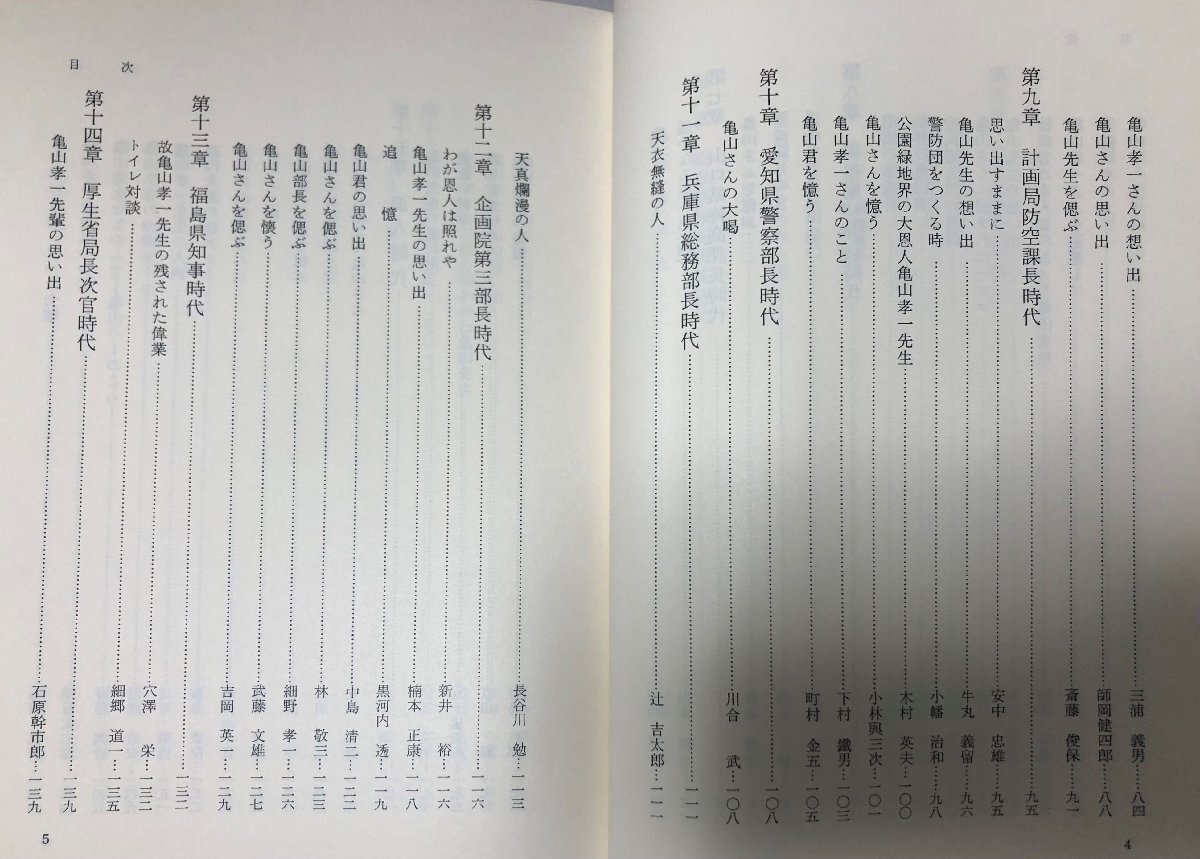 亀山孝一さんの想い出……三浦　義男…八四
亀山さんの思い出……師岡健四郎…八八
亀山先生を偲ぶ……斎藤　俊保…九一
第九章　計画局防空課長時代……九五
思い出すままに……安中　忠雄…九五
亀山先生の想い出……牛丸　義留…九六
警防団をつくる時……小幡　治和…九八
公園緑地界の大恩人亀山孝一先生……木村　英夫…一〇〇
亀山さんを憶う……小林與三次…一〇一
亀山孝一さんのこと……下村　鐵男…一〇三
亀山君を憶う……町村　金五…一〇五
第十章　愛知県警察部長時代……一〇八
亀山さんの大喝……川合　武…一〇八
第十一章　兵庫県総務部長時代……一一一
天衣無縫の人……辻　吉太郎…一一一
4
目　次
天真爛漫の人……長谷川　勉…一一三
第十二章　企画院第三部長時代……一一六
わが恩人は照れや……新井　裕…一一六
亀山孝一先生の思い出……楠本　正康…一一八
追　憶……黒河内　透…一一九
亀山君の思い出……中島　清二…一二二
亀山さんを偲ぶ……林　敬三…一二三
亀山部長を偲ぶ……細野　孝一…一二六
亀山さんを懐う……武藤　文雄…一二七
亀山さんを偲ぶ……吉岡　英一…一二九
第十三章　福島県知事時代……一三二
故亀山孝一先生の残された偉業……穴澤　栄…一三二
トイレ対談……細郷　道一…一三五
第十四章　厚生省局長次官時代……一三九
亀山孝一先輩の思い出……石原幹市郎…一三九
5